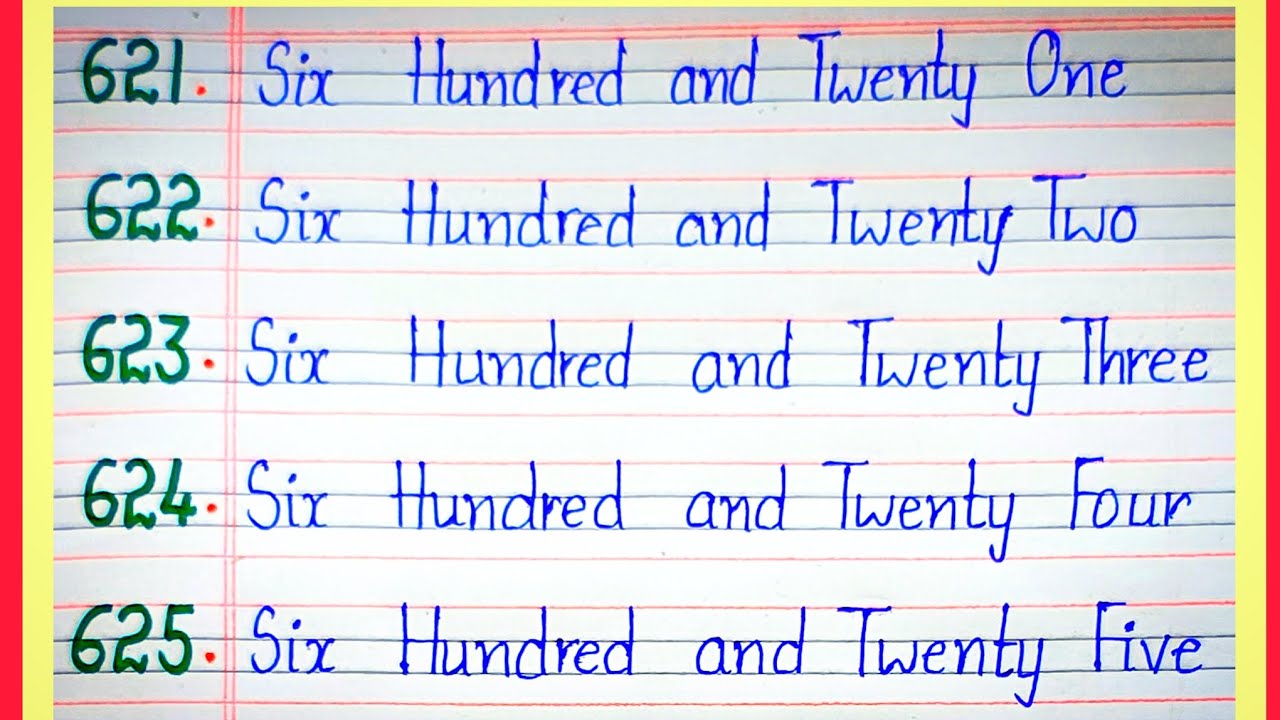 621. Six Hundred and Twenty One
622. Six Hundred and Twenty Two
623. Six Hundred and Twenty Three
624. Six Hundred and Twenty Four
625. Six Hundred and Twenty Five